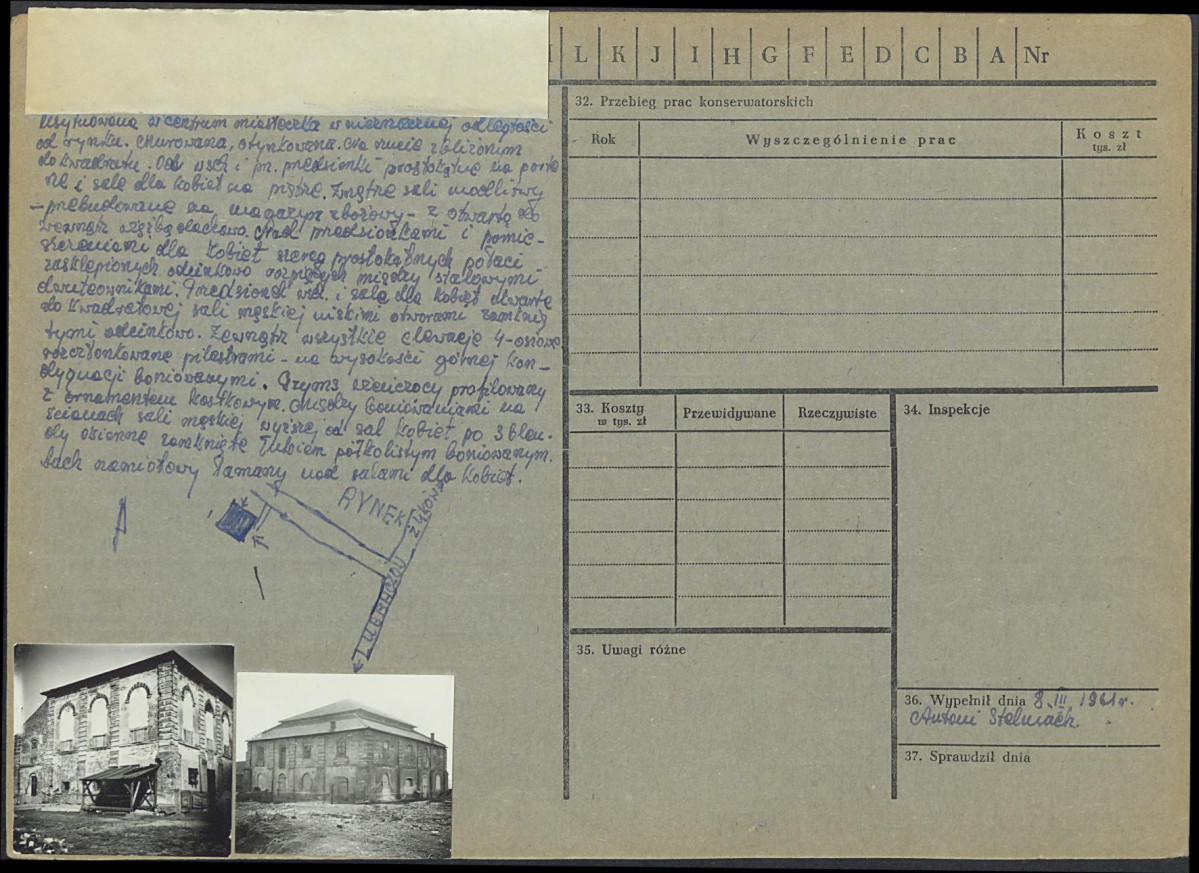 L K J I H G F E D C B A Nr
Usytuowana w centrum miasteczka w nieznacznej odległości
od rynku. Murowana, otynkowana. Na rzucie zbliżonym
do kwadratu. Od wsch i pn. przedsionki prostokątne na parte
rze i sale dla kobiet na piętrze. Wnętrze sali modlitwy
– przebudowane na magazyn zbożowy – z otwartą do
wewnątrz więźbą dachową. Nad przedsionkami i pomie-
szczeniami dla kobiet szereg prostokątnych połaci
zasklepionych odcinkowo rozpiętych między stalowymi
dwuteownikami. Przedsionek wsch. i sala dla kobiet otwarte
do kwadratowej sali męskiej niskimi otworami zamknię
tymi odcinkowo. Zewnątrz wszystkie elewacje 4-osiowe
rozczłonkowane pilastrami – na wysokości górnej kon-
dygnacji boniowanymi. Gzyms wieńczący profilowany
z ornamentem kostkowym. Między boniowaniami na
ścianach sali męskiej wyższej od sal kobiet po 3 blen-
dy okienne zamknięte łukiem półkolistym boniowanym.
Dach namiotowy łamany nad salami dla kobiet.
RYNEK
LUBACZÓW
32. Przebieg prac konserwatorskich
Rok
Wyszczególnienie prac
Koszt
tys. zł
33. Koszty
w tys. zł
Przewidywane
Rzeczywiste
34. Inspekcje
35. Uwagi różne
36. Wypełnił dnia 8.III 1961 r.
Antoni Stelmach.
37. Sprawdził dnia